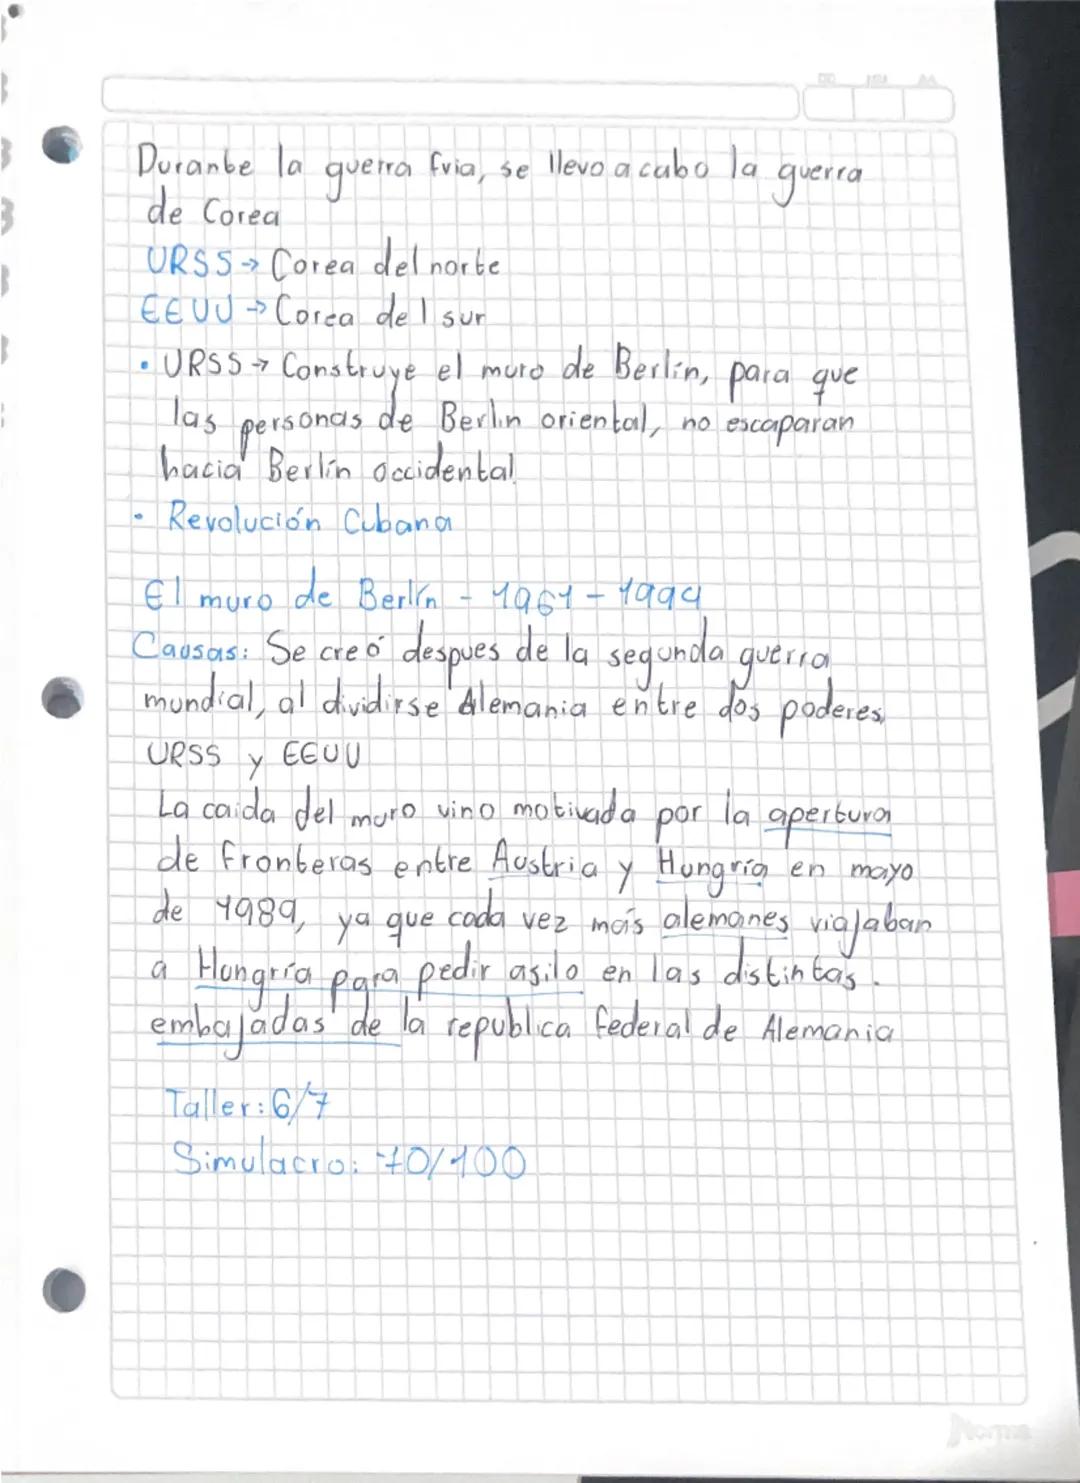 Durante la guerra fria, se llevo a cabo la guerra
de Corea
URSS → Corea del norte
EEUU → Corea del sur
• URSS → Construye el muro de Berlín, para que
las personas de Berlin oriental, no escaparan
hacia Berlín occidental.
• Revolución Cubana
El muro de Berlín - 1961 - 1994
Causas: Se creó despues de la segunda guerra
mundial, al dividirse Alemania entre dos poderes,
URSS y EEUU
La caida del muro vino motivada por la apertura
de fronteras entre Austria y Hungría en mayo
de 1989, ya que cada vez más alemanes viajaban
a Hungría para pedir asilo en las distintas.
embajadas de la republica federal de Alemania
Taller: 6/7
Simulacro: 70/100
Norma